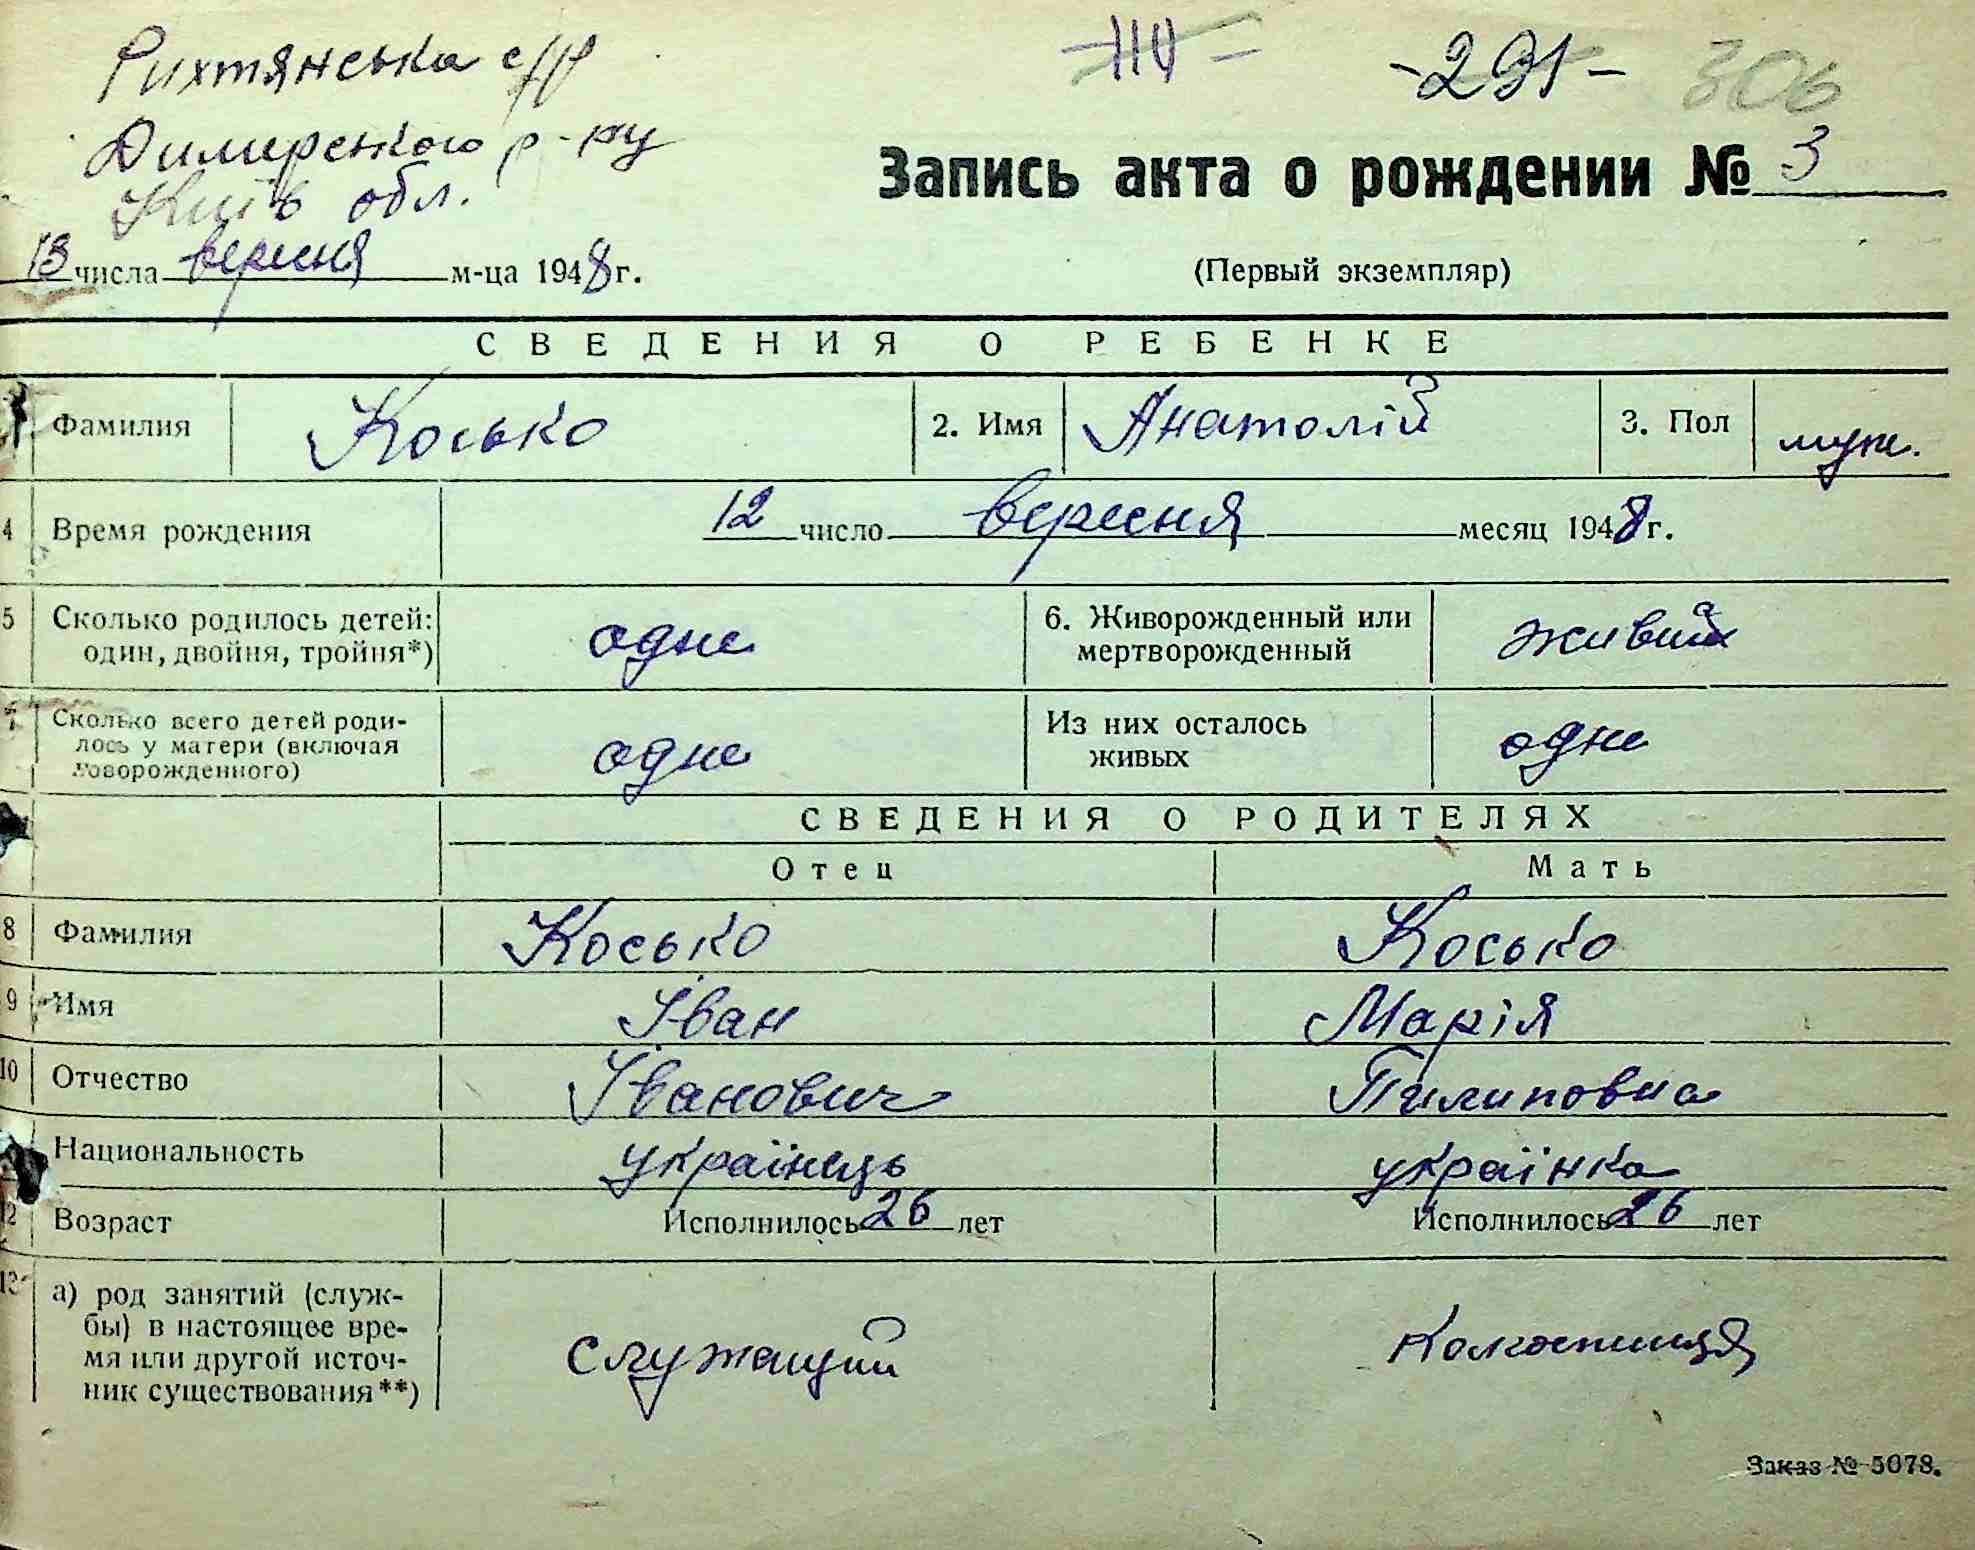 Рихтянська с/р
Димерського р-ну
Київ обл.
-291- 306
Запись акта о рождении № 3
13 числа вересня м-ца 1948 г.
(Первый экземпляр)
СВЕДЕНИЯ О РЕБЕНКЕ
Фамилия Косько 2. Имя Анатолій 3. Пол муж.
4 Время рождения 12 число вересня месяц 1948 г.
5 Сколько родилось детей: один, двойня, тройня*) одне 6. Живорожденный или мертворожденный живий
7 Сколько всего детей роди-
лось у матери (включая
новорожденного) одне Из них осталось живых одне
СВЕДЕНИЯ О РОДИТЕЛЯХ
Отец Мать
8 Фамилия Косько Косько
9 Имя Іван Марія
10 Отчество Іванович Пилиповна
Национальность українець українка
12 Возраст Исполнилось 26 лет Исполнилось 26 лет
13 а) род занятий (служ-
бы) в настоящее вре-
мя или другой источ-
ник существования**) служащий Колхозниця
Заказ № 5078.